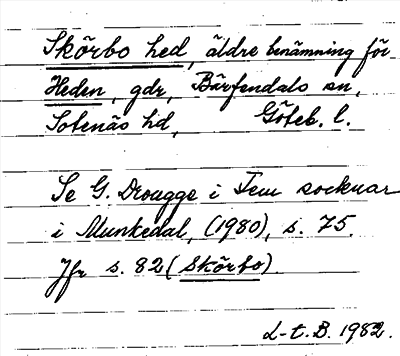 Skörbo hed, äldre benämning för
Heden, gdr, Bärfendals sn,
Sotenäs hd, Göteb. l.
Se G. Drougge i Fem socknar
i Munkedal, (1980), s. 75.
Jfr s. 82 (Skörbo).
L-t. B. 1982.